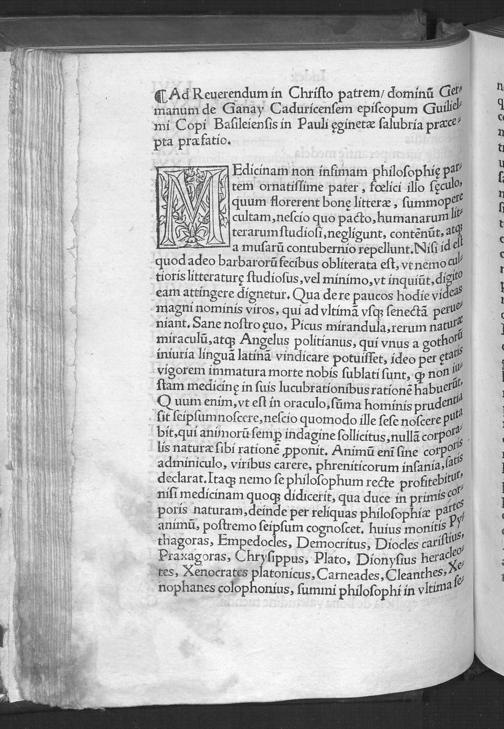 ¶Ad Reuerendum in Christo patrem/ dominũ Ger⸗
manum de Ganay Caduricensem episcopum Guiliel⸗
mi Copi Basileiensis in Pauli ęginetæ salubria præce⸗
pta præfatio.
MEdicinam non infimam philosophię par⸗
tem ornatissime pater, fœlici illo sęculo,
quum florerent bonę litteræ, summopere
cultam, nescio quo pacto, humanarum lit⸗
terarum studiosi, negligunt, contẽnũt, atqꝫ
a musarũ contubernio repellunt. Nisi id est
quod adeo barbarorũ fecibus obliterata est, vt nemo cul⸗
tioris litteraturę studiosus, vel minimo, vt inquiũt, digito
eam attingere dignetur. Qua de re paucos hodie videas
magni nominis viros, qui ad vltimã vsqꝫ senectã perue⸗
niant. Sane nostro ęuo, Picus mirandula, rerum naturæ
miraculũ, atqꝫ Angelus politianus, qui vnus a gothorũ
iniuria linguã latinã vindicare potuisset, ideo per ętatis
vigorem immatura morte nobis sublati sunt, ꝙ non iu⸗
stam medicinę in suis lucubrationibus rationẽ habuerũt.
Quum enim, vt est in oraculo, sũma hominis prudentia
sit seipsum noscere, nescio quomodo ille sese noscere puta
bit, qui animorũ semꝑ indagine sollicitus, nullã corpora⸗
lis naturæ sibi rationẽ ꝓponit. Animũ eni̇̃ sine corporis
adminiculo, viribus carere, phreniticorum insania, satis
declarat. Itaqꝫ nemo se philosophum recte profitebitur,
nisi medicinam quoqꝫ didicerit, qua duce in primis cor⸗
poris naturam, deinde per reliquas philosophiæ partes
animũ, postremo seipsum cognoscet. huius monitis Py⸗
thagoras, Empedocles, Democritus, Diocles caristius,
Praxagoras, Chrysippus, Plato, Dionysius heracleo⸗
tes, Xenocrates platonicus, Carneades, Cleanthes, Xe⸗
nophanes colophonius, summi philosophi in vltima se⸗